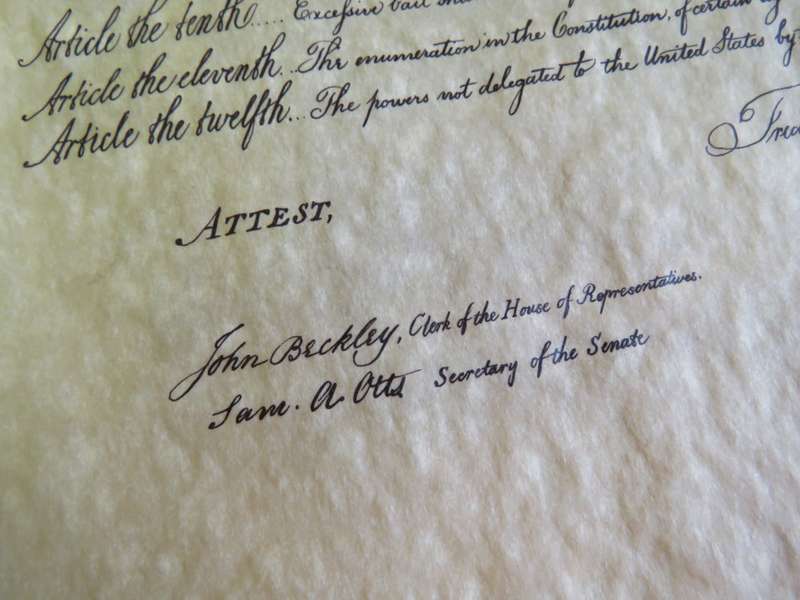 Article the tenth..... Excessive bail
Article the eleventh...The enumeration in the Constitution, of certain
Article the twelfth... The powers not delegated to the United States by
ATTEST,
John Beckley, Clerk of the House of Representatives.
Sam. A. Otis Secretary of the Senate